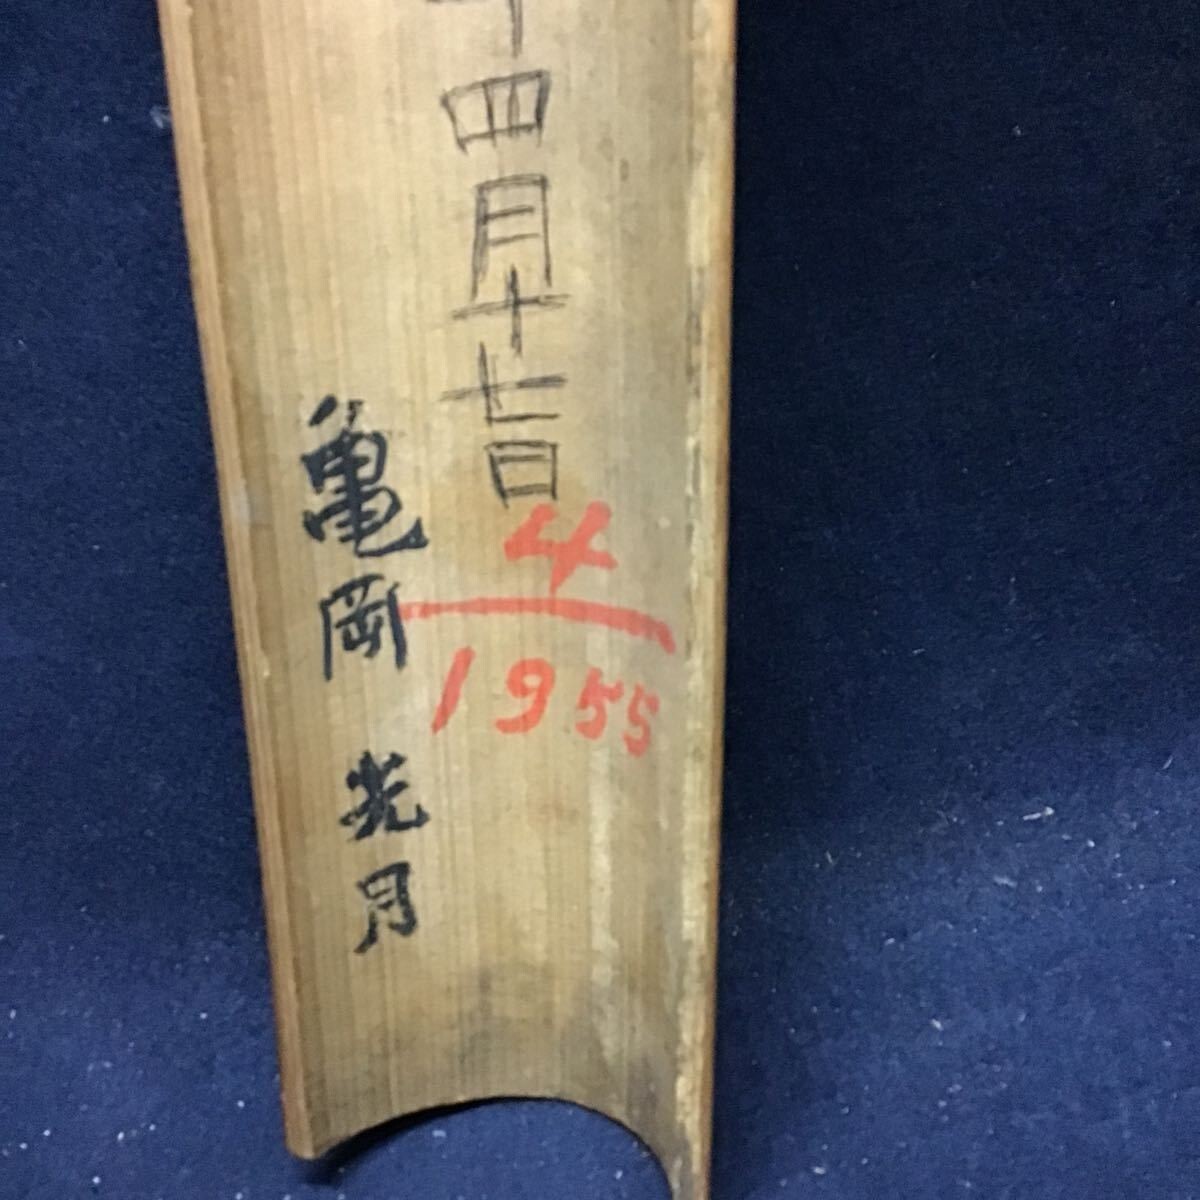 年四月十七日
4
1955
亀岡 光月